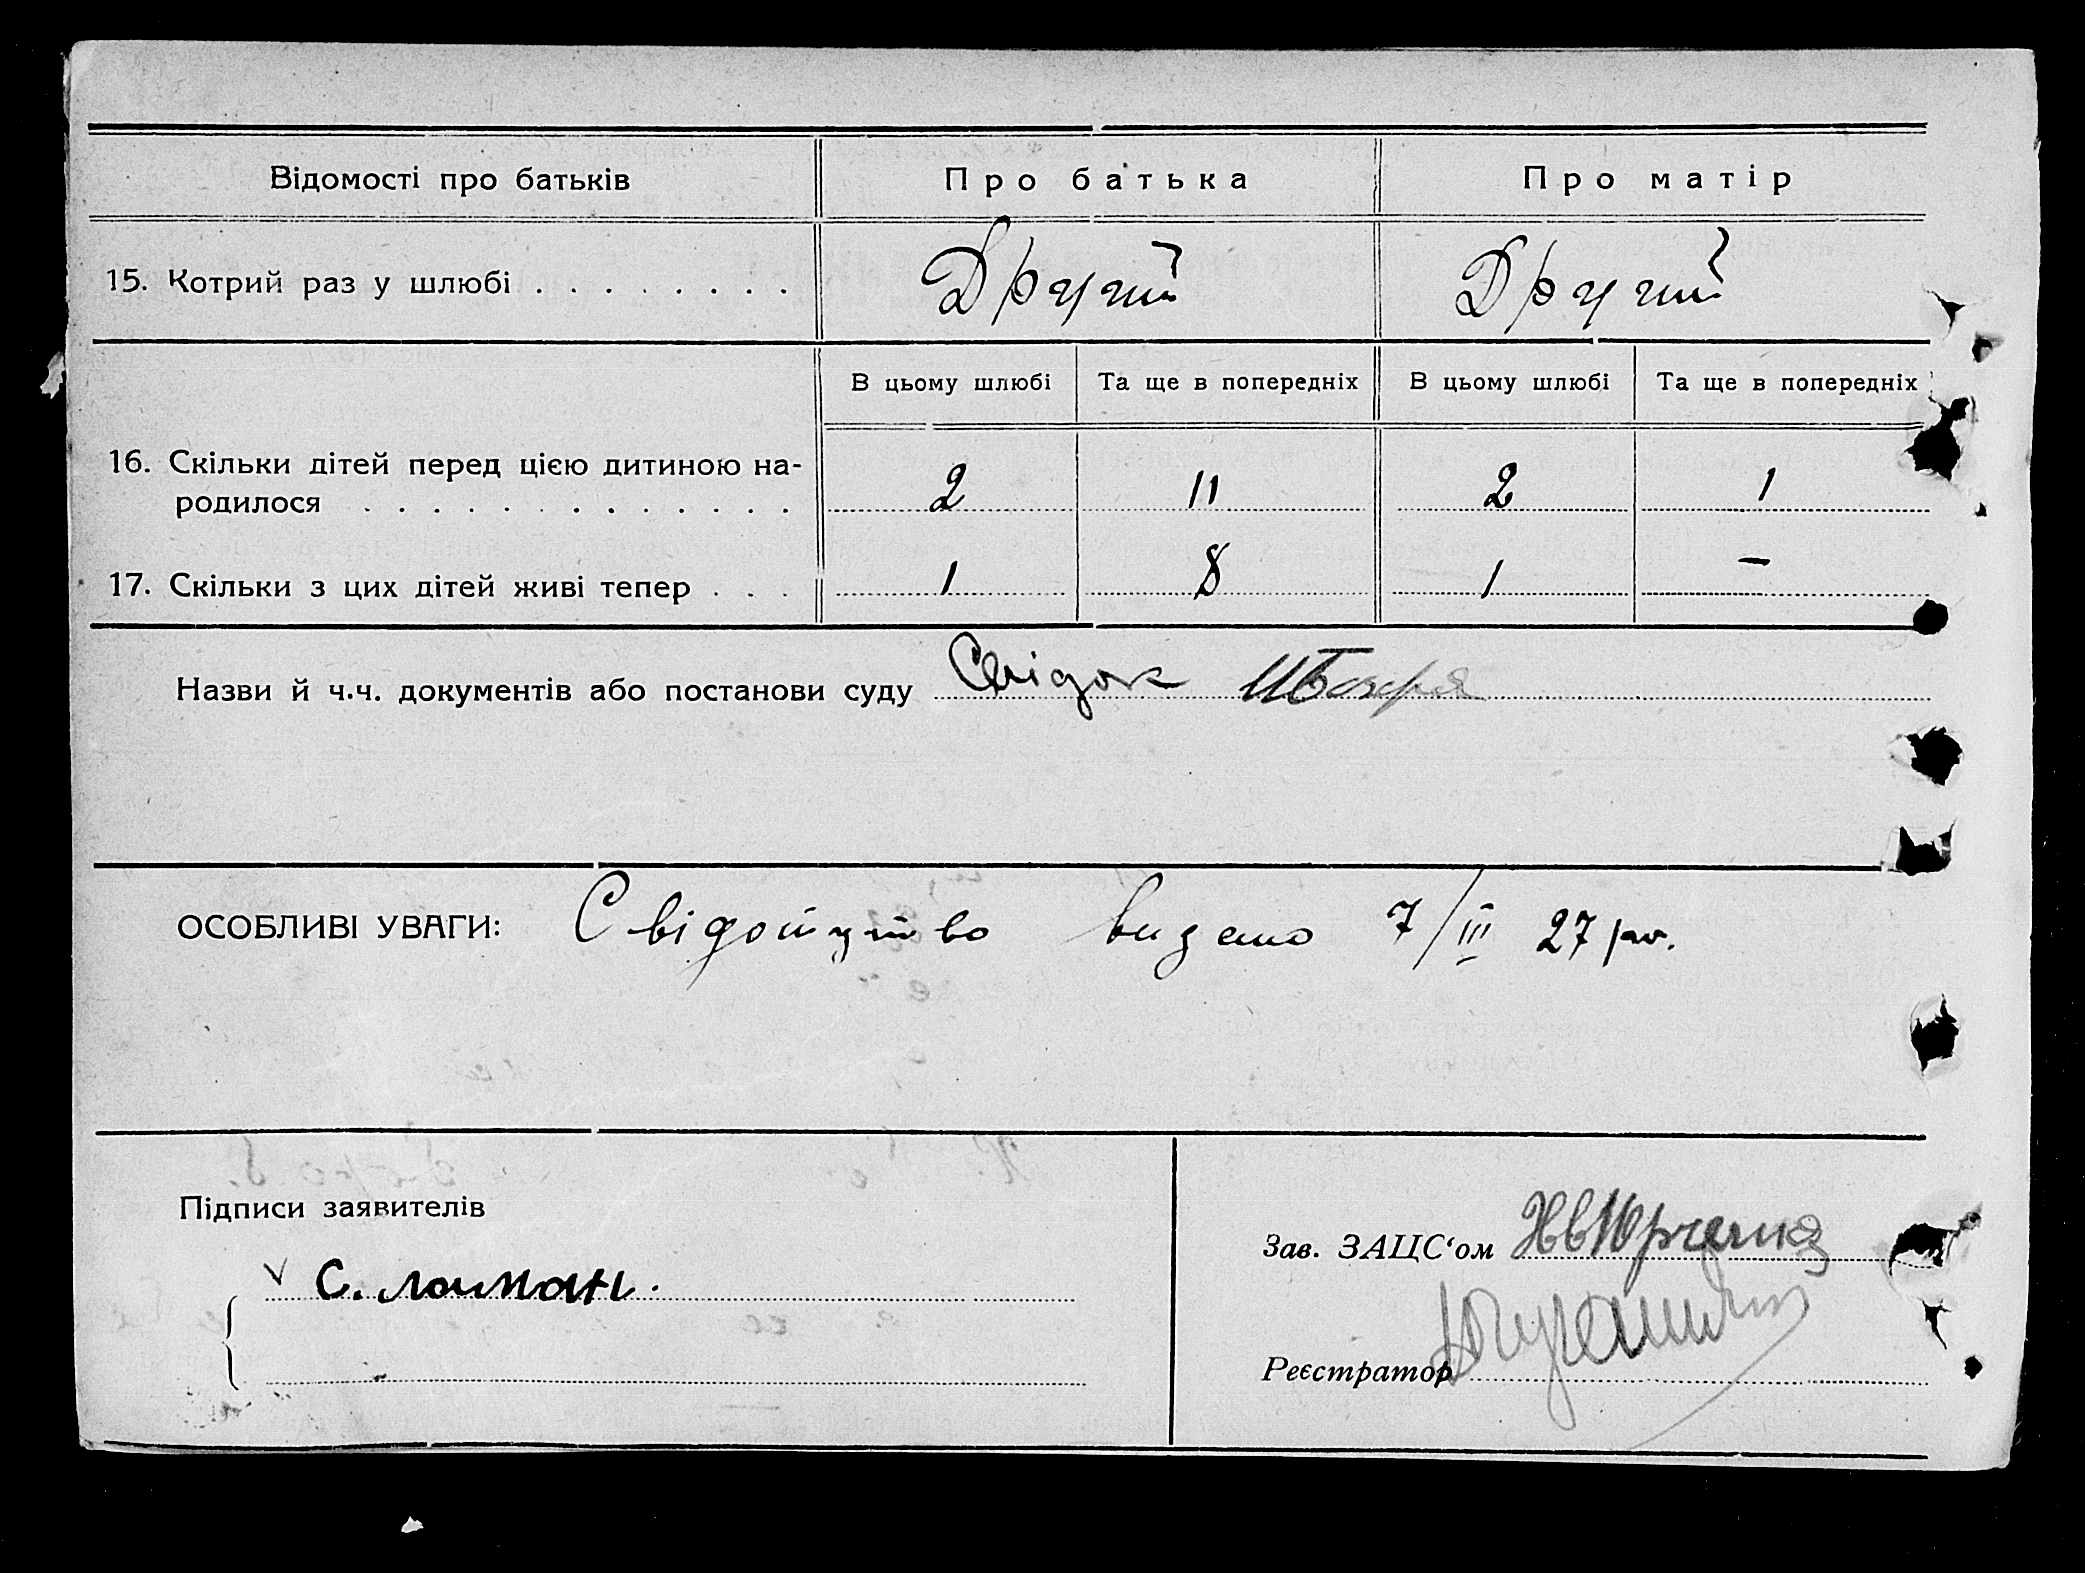 Відомості про батьків Про батька Про матір
15. Котрий раз у шлюбі . . . . . . . . Другий Другий
В цьому шлюбі Та ще в попередніх В цьому шлюбі Та ще в попередніх
16. Скільки дітей перед цією дитиною на-
родилося . . . . . . . . . . . . . 2 11 2 1
17. Скільки з цих дітей живі тепер . . . 1 8 1 –
Назви й ч.ч. документів або постанови суду Свідок
ОСОБЛИВІ УВАГИ: Свідоцтво видано 7/III 27 р.
Підписи заявителів
Зав. ЗАЦС‘ом
V С. лоиман.
Реєстратор